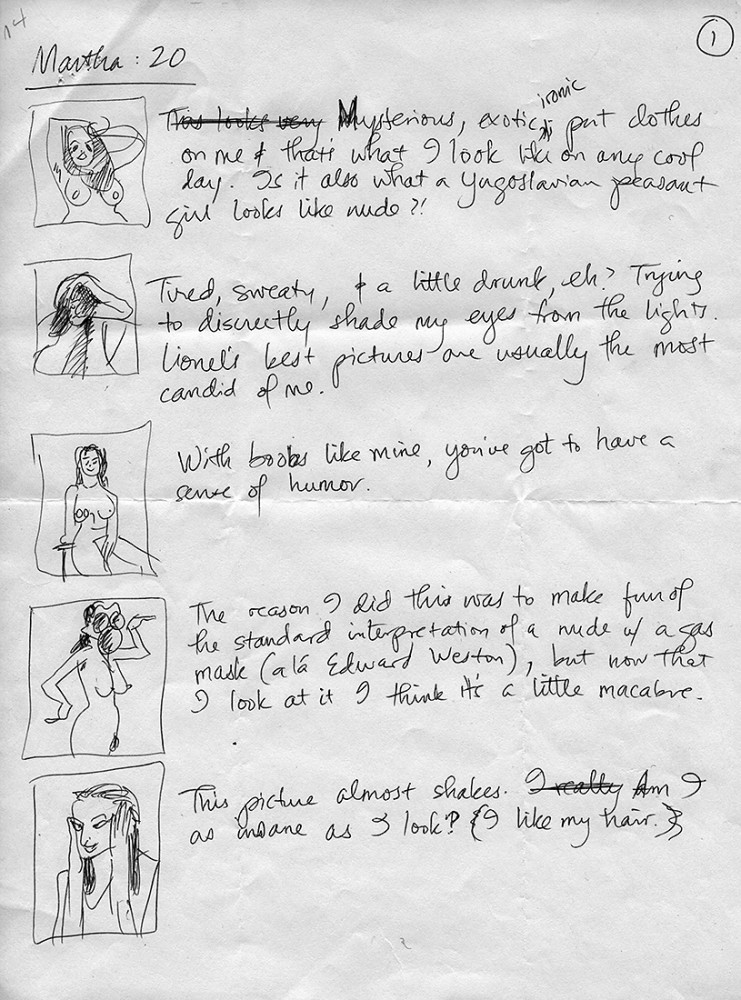 14
1
Martha : 20
This looks very Mysterious, exotic, ironic put clothes
on me & that's what I look like on any cool
day. Is it also what a Yugoslavian peasant
girl looks like nude?!
Tired, sweaty, & a little drunk, eh? Trying
to discreetly shade my eyes from the lights.
Lionel's best pictures are usually the most
candid of me.
With boobs like mine, you've got to have a
sense of humor.
The reason I did this was to make fun of
the standard interpretation of a nude w/ a gas
mask (a lá Edward Weston), but now that
I look at it I think it's a little macabre.
This picture almost shakes. I really Am I
as insane as I look? {I like my hair.}